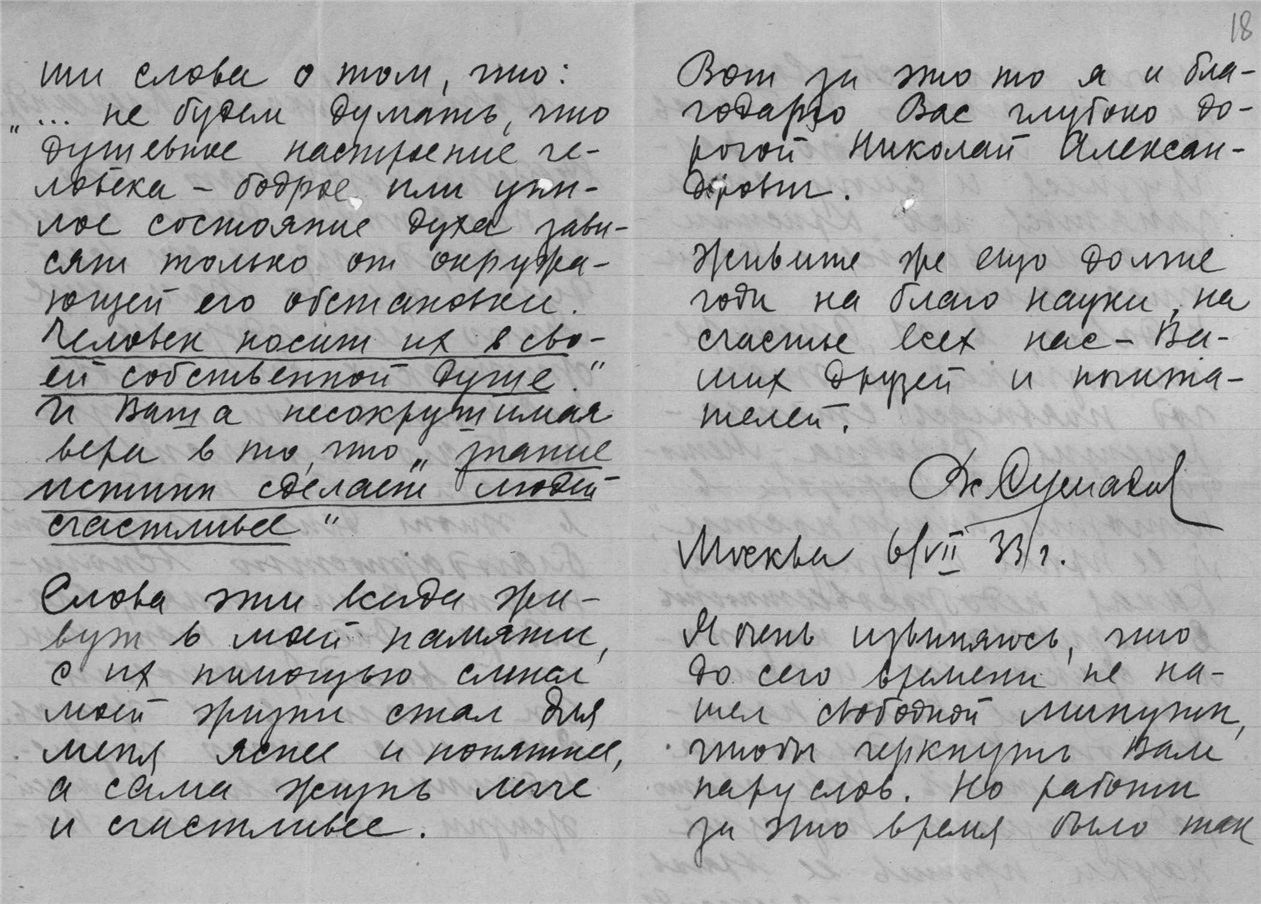 ши слова о том, что:
"... не будем думать, что
душевное настроение че-
ловека – бодрое или уны-
лое состояние духа зави-
сят только от окружа-
ющей его обстановки.
Человек носит их в сво-
ей собственной душе."
И Ваша несокрушимая
вера в то, что "знание
истины сделает людей
счастливее"
Слова эти всегда жи-
вут в моей памяти,
с их помощью смысл
моей жизни стал для
меня яснее и понятнее,
а сама жизнь легче
и счастливее.
18
Вот за это то я и бла-
годарю Вас глубоко до-
рогой Николай Алексан-
дрович.
Живите же ещо долгие
годы на благо науки, на
счастье всех нас – Ва-
ших друзей и почита-
телей.
Москва 6/VII 33 г.
Я очень извиняюсь, что
до сего времени не на-
шел свободной минуты,
чтобы черкнуть Вам
пару слов. Но работы
за это время было так